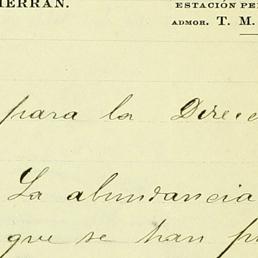 HERRÁN.
ESTACIÓN PE
ADMOR. T. M.
para la Direc
La abundancia
que se han p